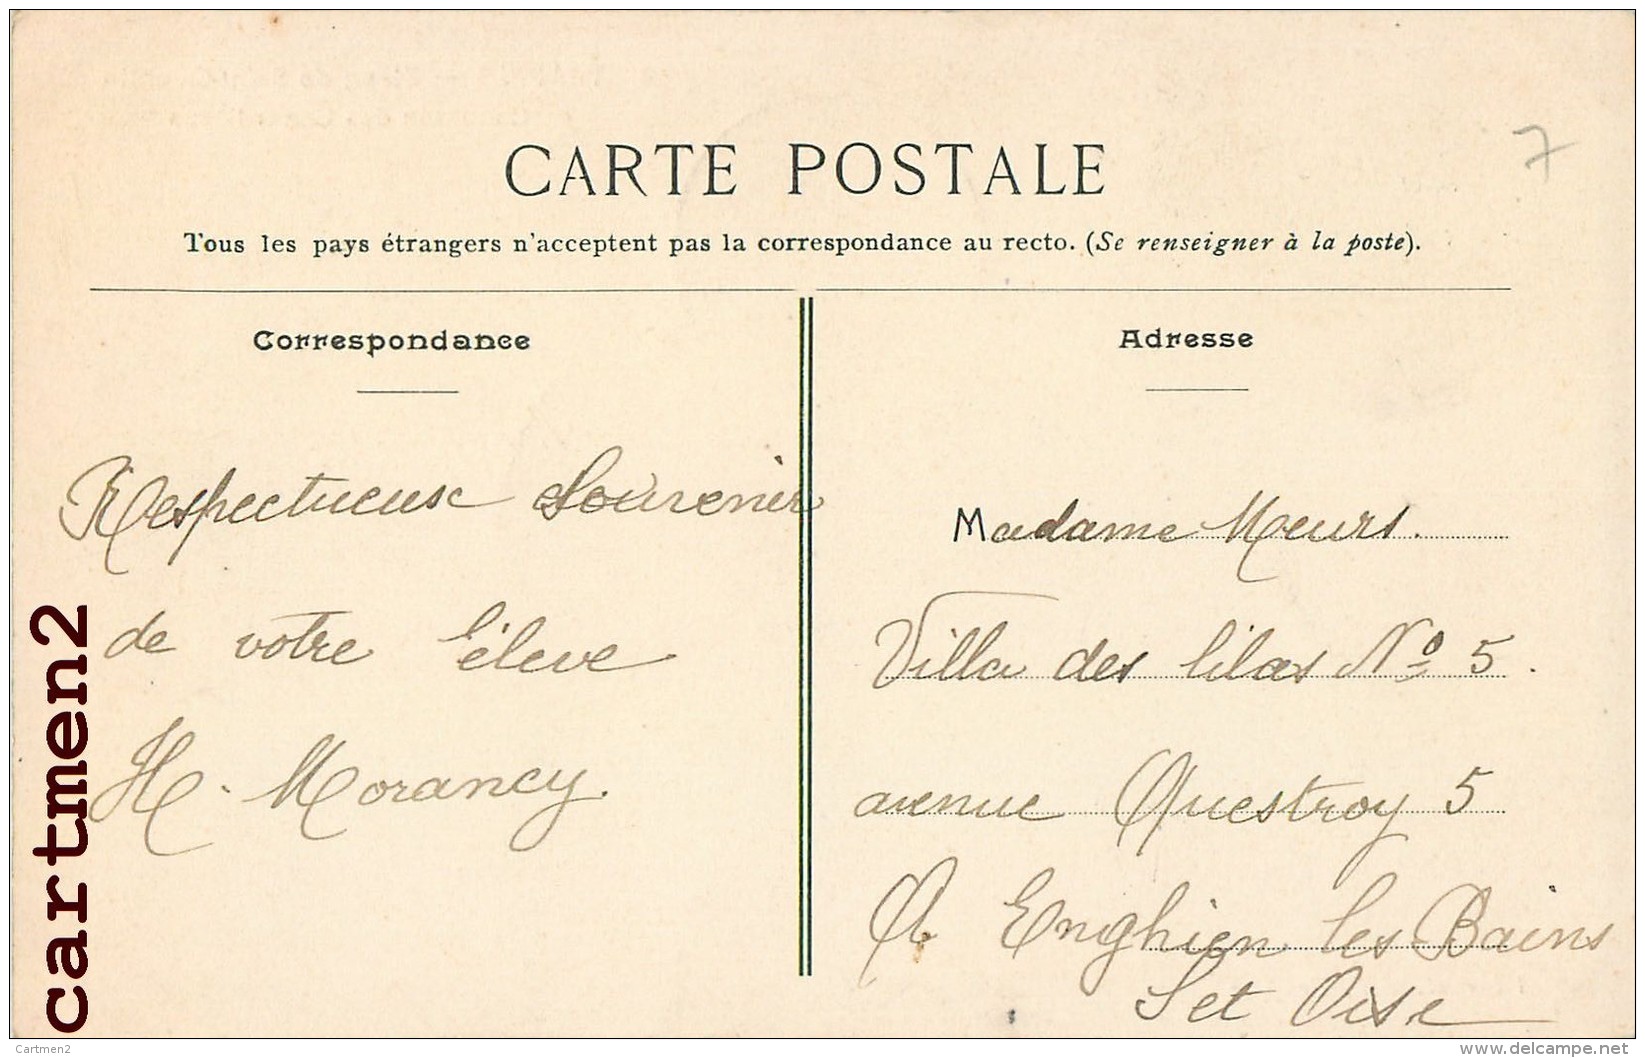 CARTE POSTALE
7
Tous les pays étrangers n'acceptent pas la correspondance au recto. (Se renseigner à la poste).
Correspondance
Respectueuse Souvenir
de votre élève
H. Morancy.
Adresse
Madame Meurs.
Villa des lilas Nº 5.
avenue Questroy 5
A Enghien les Bains
S et Oise
cartmen2
Cartmen2
www.delcampe.net